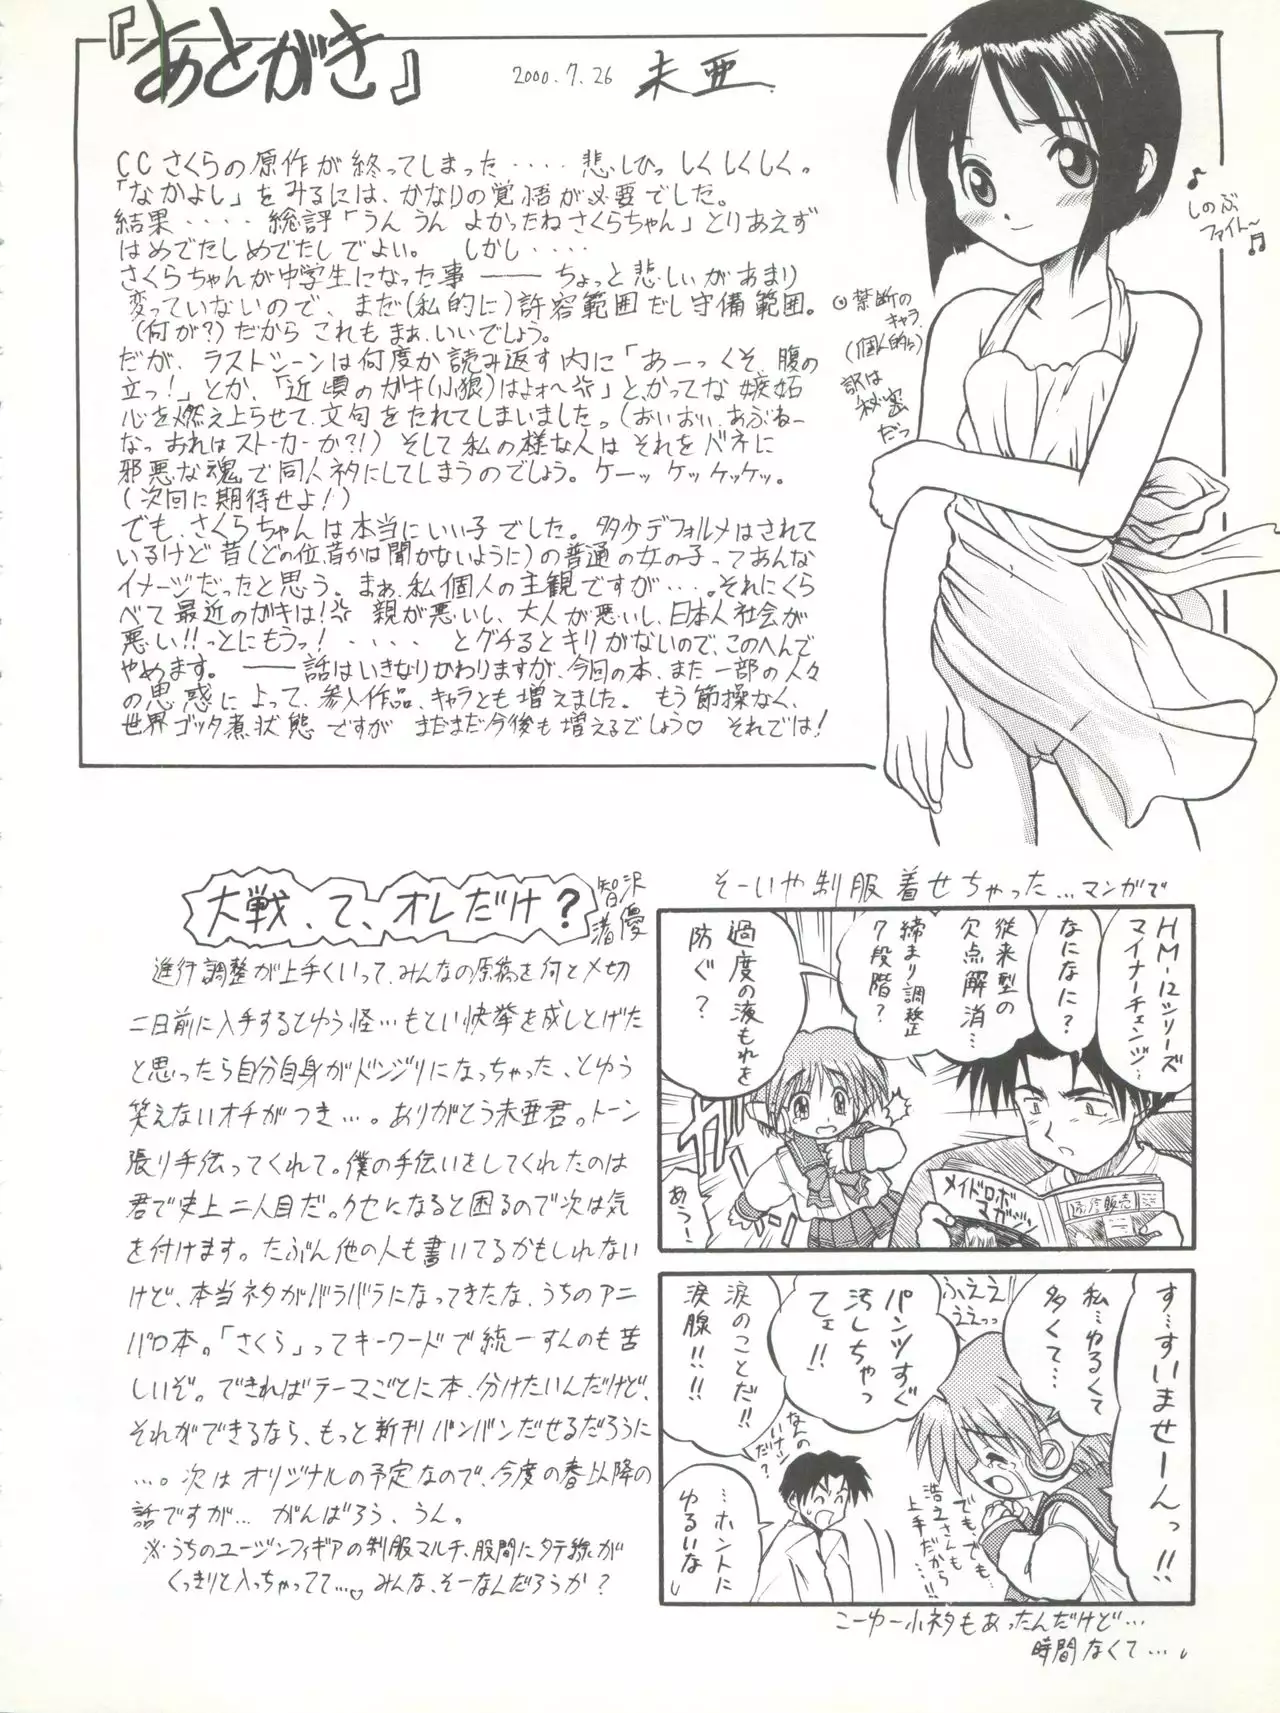 『あとがき』
2000.7.26 未亜
CCさくらの原作が終ってしまった・・・・悲しひっしくしくしく。
「なかよし」をみるには、かなりの覚悟が必要でした。
結果・・・・総評「うんうんよかったねさくらちゃん」とりあえず
はめでたしめでたしでよい。しかし・・・・
さくらちゃんが中学生になった事――ちょっと悲しいがあまり
変っていないので、まだ(私的に)許容範囲だし守備範囲。
(何が?)だからこれもまぁ、いいでしょう。
だが、ラストシーンは何度か読み返す内に「あーっくそ、腹の
立っ!」とか、「近頃のガキ(小狼)はよォ〜」とかってな嫉妬
心を燃え上らせて、文句をたれてしまいました。(おいおい、あぶねー
なっおれはストーカーか?!)そして私の様な人はそれをバネに
邪悪な魂で同人ネタにしてしまうのでしょう。ケーッケッケッケッ。
(次回に期待せよ!)
でも、さくらちゃんは本当にいい子でした。多少デフォルメはされて
いるけど昔(どの位、昔かは聞かないように)の普通の女の子ってあんな
イメージだったと思う。まぁ、私個人の主観ですが・・・。それにくら
べて最近のガキは!親が悪いし、大人が悪いし、日本人社会が
悪い!!っとにもうっ!・・・・とグチるとキリがないので、このへんで
やめます。――話はいきなりかわりますが、今回の本、また一部の人々
の思惑によって、参入作品、キャラとも増えました。もう節操なく、
世界ゴッタ煮状態ですがまだまだ今後も増えるでしょう♡それでは!
♪しのぶ
ファイト〜♬
禁断の
キャラ
(個人的に)
訳は
秘密
だっ
大戦、て、オレだけ?
智沢渚優
進行調整が上手くいって、みんなの原稿を何と〆切
二日前に入手するとゆう怪…もとい快挙を成しとげた
と思ったら自分自身がドンジリになっちゃった、とゆう
笑えないオチがつき…。ありがとう未亜君。トーン
張り手伝ってくれて。僕の手伝いをしてくれたのは
君で史上二人目だ。クセになると困るので次は気
を付けます。たぶん他の人も書いてるかもしれない
けど、本当ネタがバラバラになってきたな、うちのアニ
パロ本。「さくら」ってキーワードで統一すんのも苦
しいぞ。できればテーマごとに本、分けたいんだけど、
それができるなら、もっと新刊バンバンだせるだろうに
…。次はオリジナルの予定なので、今度の春以降の
話ですが…がんばろう、うん。
※うちのユージンフィギアの制服マルチ、股間にタテ線が
くっきりと入っちゃってて…♡みんな、そーなんだろうか?
そーいや制服着せちゃった…マンガで
HM-12シリーズ
マイナーチェンジ…
なになに?
従来型の
欠点解消…
締まり調整
7段階?
過度の液もれを
防ぐ?
ガーン
あうー!
メイドロボ
マガジン
通信販売
す…すいませーんっ!!
私…ゆるくて
多くて…
ふええ
ええっっ
パンツすぐ
汚しちゃっ
てェ!!
涙のことだ!!
涙腺!!!!
なんの
いけい
だけ?
でも、でも…
浩之さんも
上手だから
…!!
…ホントに
ゆるいな
こーゆー小ネタもあったんだけど…
時間なくて…。